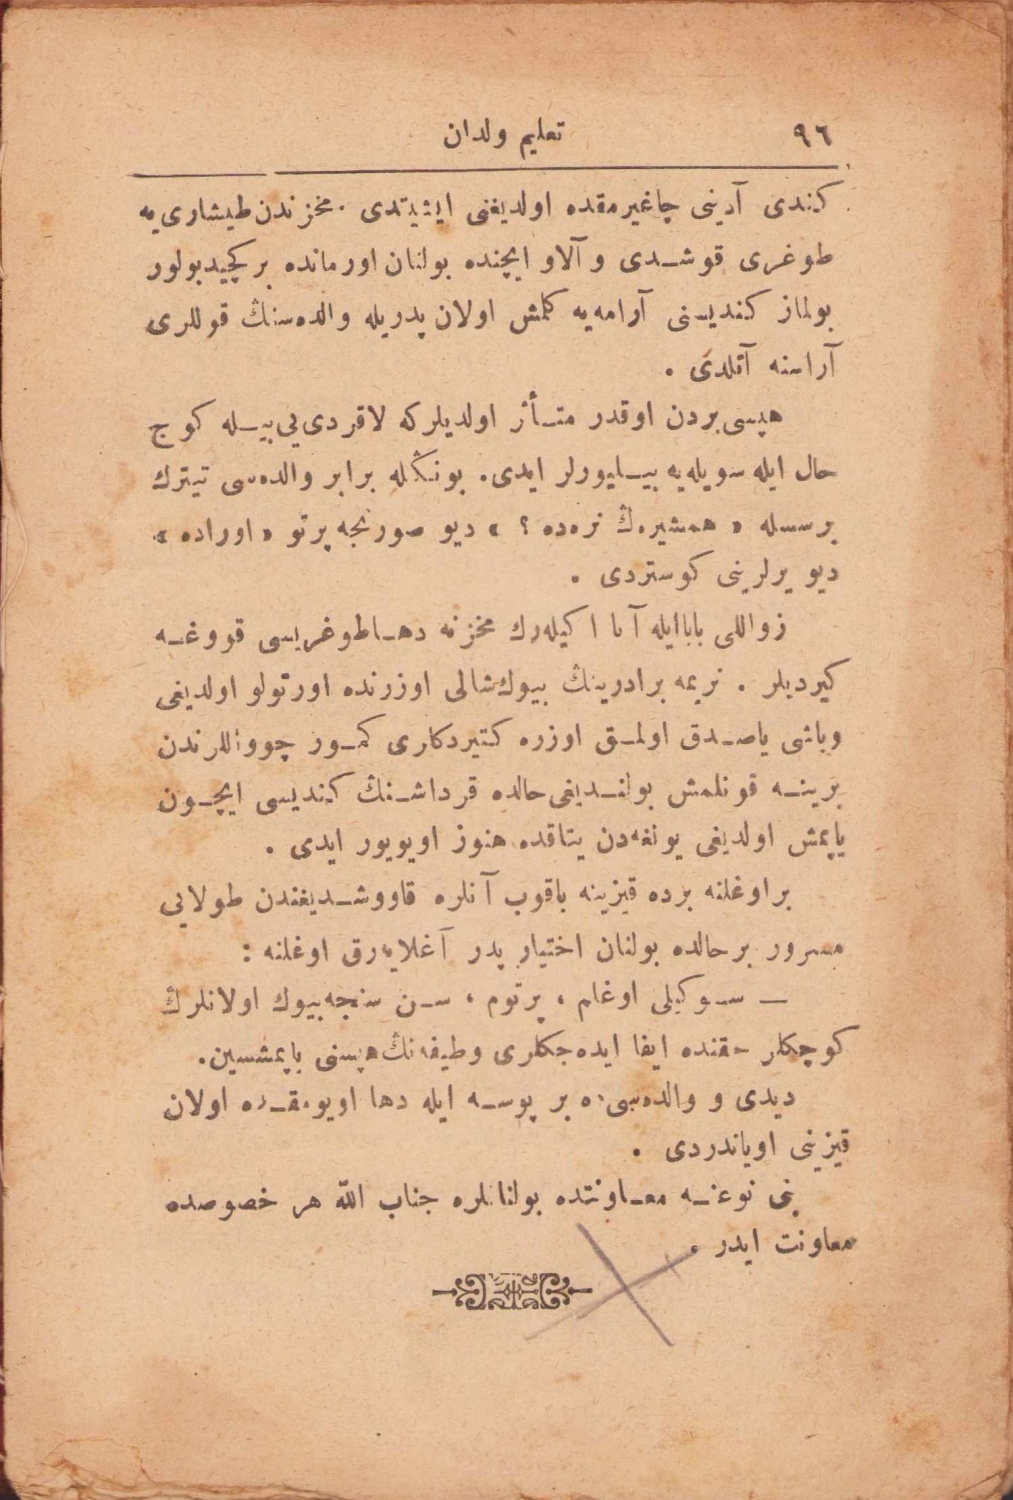 ٩٦
تعليم ولدان
كندى آدينى چاغيرمقده اولديغنى ايشيتدى . مخزندن طيشارى‌يه
طوغرى قوشدى و آلاو ايچنده بولنان اورمانده بر كچيد بولور
بولماز كنديسنى آرامه‌يه كلمش اولان پدريله والده‌سنڭ قوللرى
آراسنه آتلدى .
هپسى بردن اوقدر متأثر اولديلركه لاقردى‌يى بيله كوج
حال ايله سويله‌يه بيليورلر ايدى. بونڭله برابر والده‌سى تيترك
برسسله « همشيره‌ڭ نره‌ده ؟ » ديو صورنجه پرتو « اوراده »
ديو يرلرينى كوستردى .
زواللى بابا ايله آنا اكيله‌رك مخزنه دها طوغريسى قووغه
كيرديلر . نريمه برادرينڭ بيوك شالى اوزرنده اورتولو اولديغى
وباشى ياصدق اولمق اوزره كتيردكلرى كمور چوواللرندن
برينه قونلمش بولنديغى حالده قرداشنڭ كنديسى ايچون
ياپمش اولديغى يونغه‌دن يتاقده هنوز اويويور ايدى .
براوغلنه برده قيزينه باقوب آنلره قاووشديغندن طولايى
مسرور برحالده بولنان اختيار پدر آغلايه‌رق اوغلنه :
— سوكيلى اوغلم ، پرتوم ، سن سنجه بيوك اولانلرڭ
كوچكلر حقنده ايفا ايده‌جكلرى وظيفه‌نڭ هپسنى ياپمشسين.
ديدى و والده‌سى ده بر پوسه ايله دها اويومقده اولان
قيزينى اوياندردى .
بنى نوعنه معاونتده بولنانلره جناب الله هر خصوصده
معاونت ايدر .